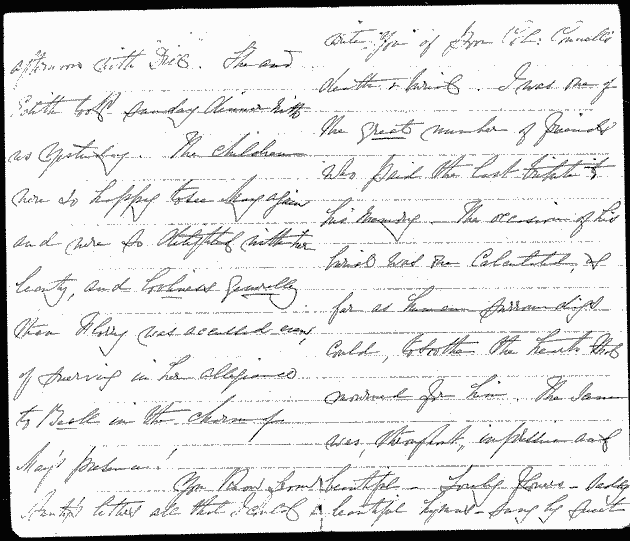 afternoon with Dick. She and
Edith took Sunday dinner with
us yesterday. The children
were so happy to see May again
and were so delighted with her
beauty, and loveliness generally
than Flory was accused even,
of swerving in her allegiance
to Beck in the charm of
May's presence!
You know from
Aunty's letters all that I could
write you of poor Col: Connell's
death & burial. I was one of
the great number of friends
who paid the last tribute to
his memory – The occasion of his
burial was one calculated, as
far as human surroundings
could, to soothe the hearts that
mourned for him. The
was, throughout, impressive and
beautiful – Lovely flowers –
beautiful hymns – sung by sweet